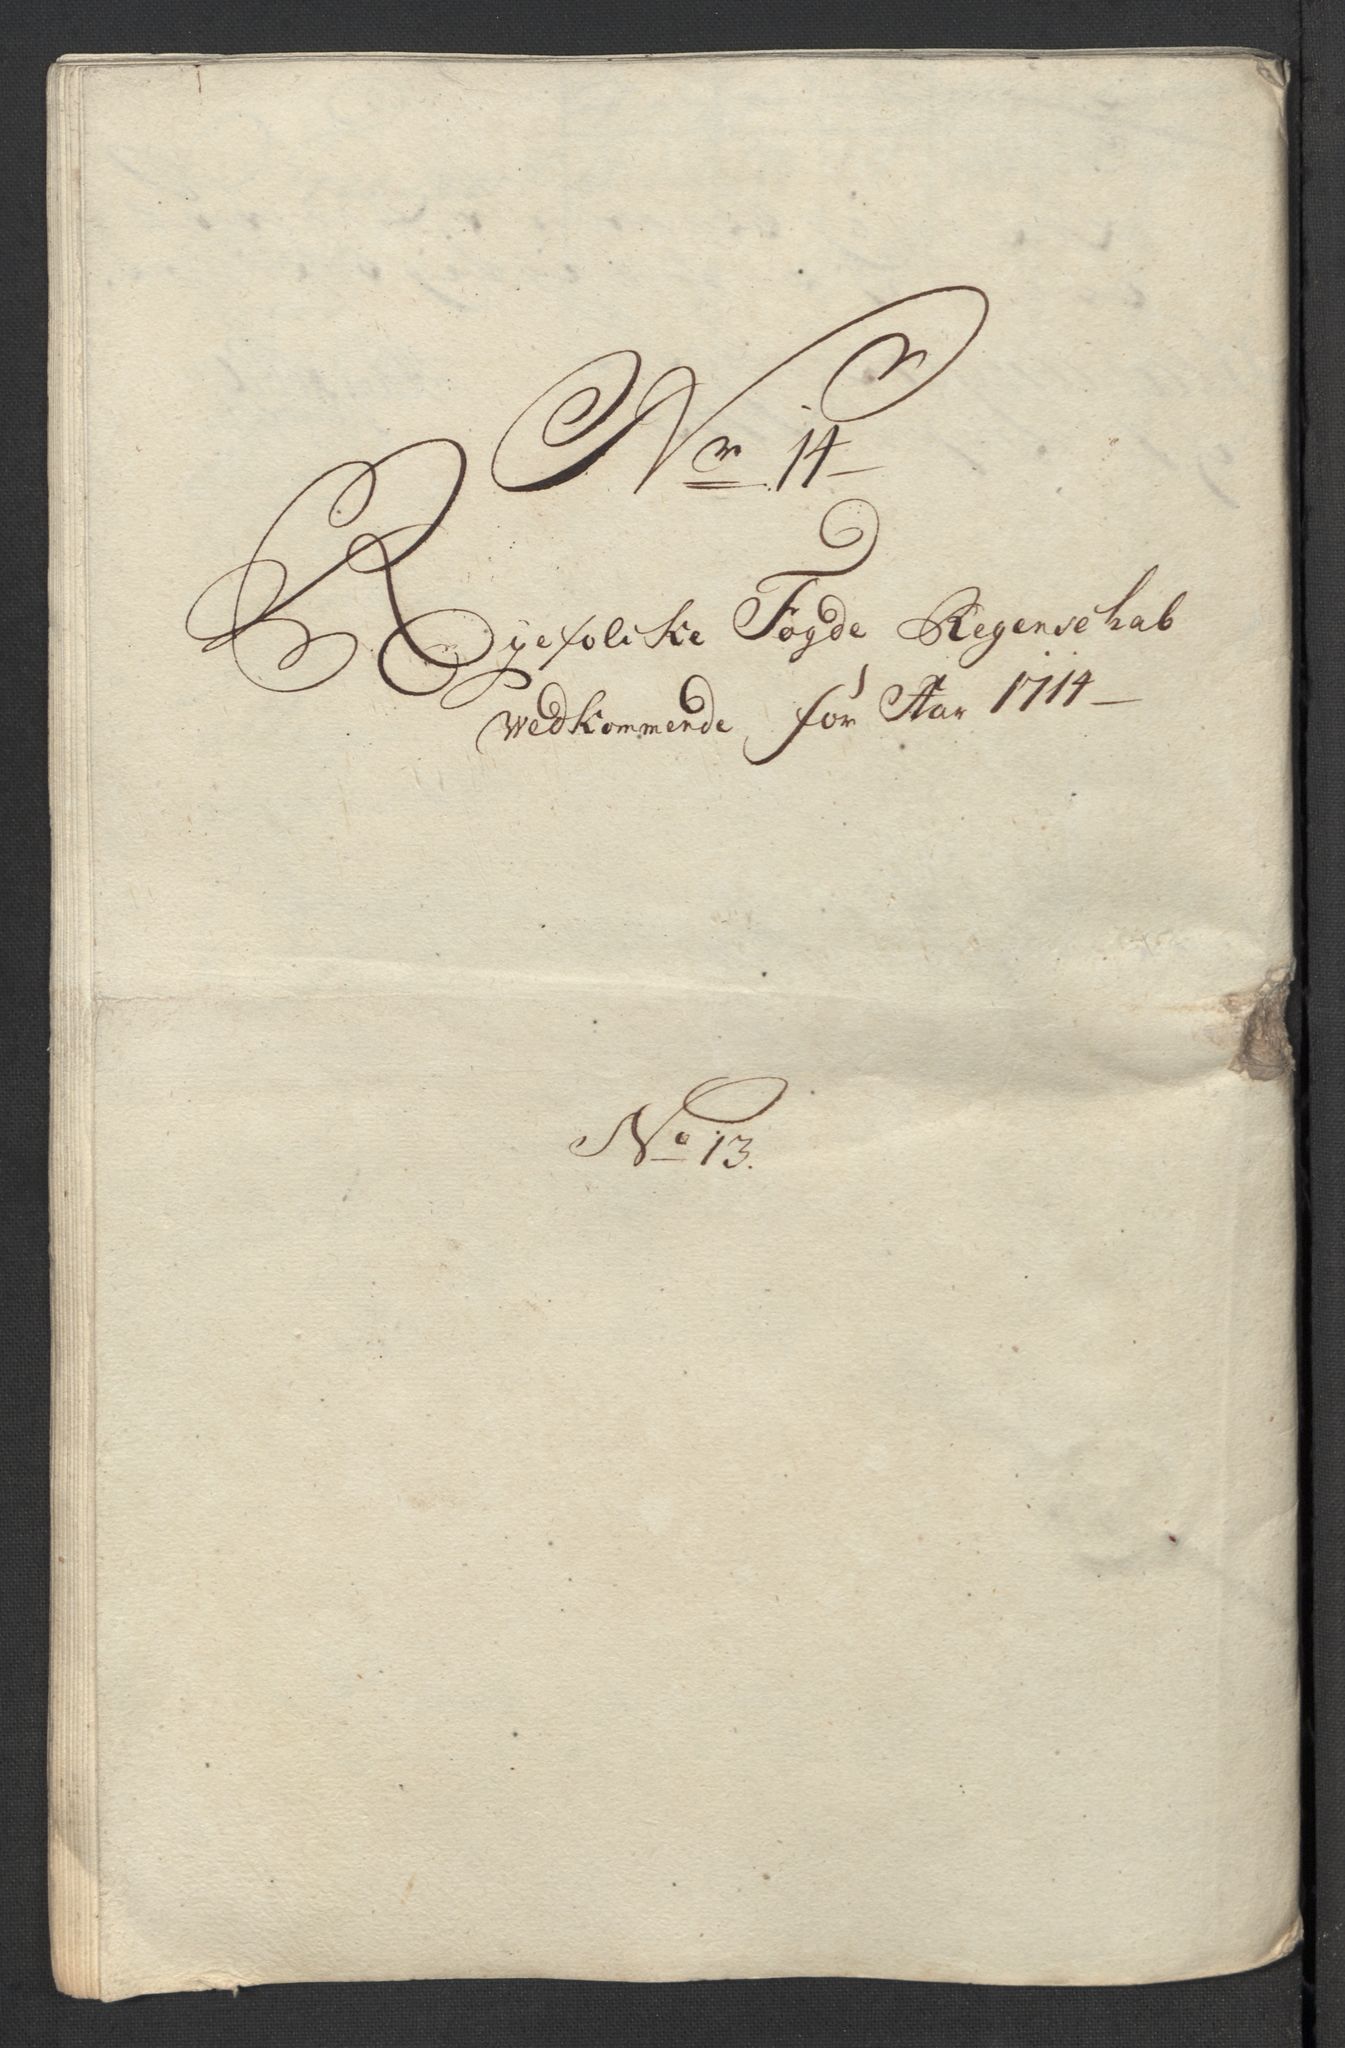 Nr 14
Ryefolcke Fogde Regenschab
vedkommende for Aar 1714
No 13.